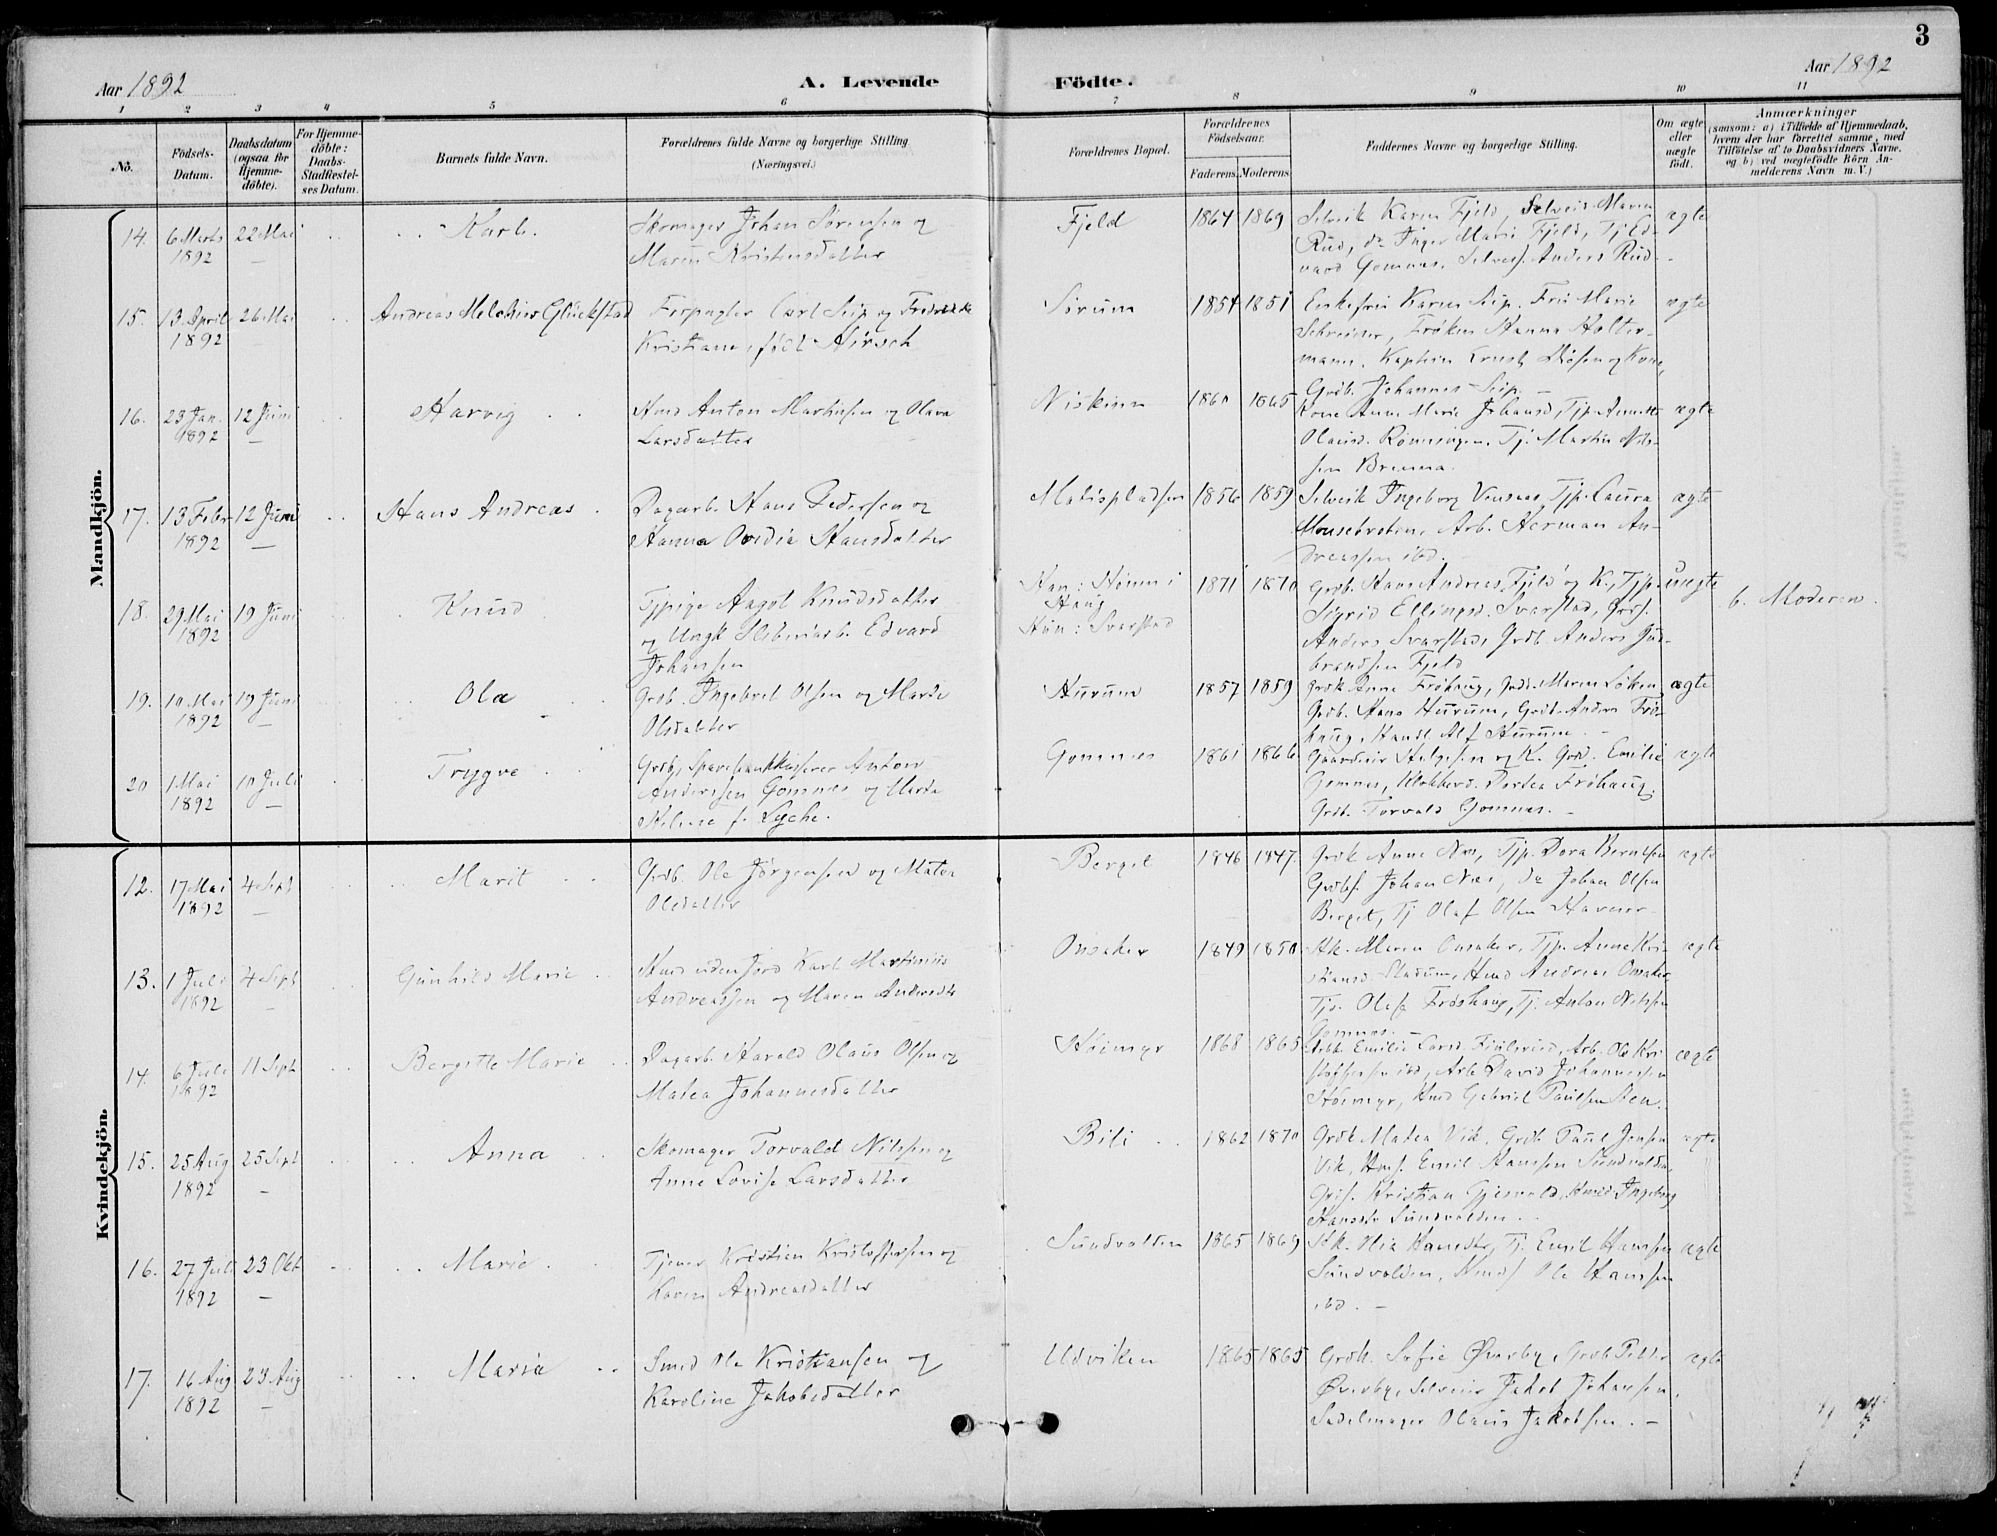 3
Aar 1892
A. Levende
Födte.
Aar 1892
1 2 3 4 5 6 7 8 9 10 11
No.
Födsels-Datum.
Daabsdatum (ogsaa for Hjemme-döbte).
For Hjemme-döbte: Daabs-Stadfæstel-ses Datum.
Barnets fulde Navn.
Forældrenes fulde Navne og borgerlige Stilling (Næringsvei.)
Forældrenes Bopæl.
Forældrenes Födselsaar.
Faderens. Moderens.
Faddernes Navne og borgerlige Stilling.
Om ægte eller uægte födt.
Anmærkninger
(saasom: a) i Tilfælde af Hjemmedaab, hvem der har forrettet samme, med Tilföielse af to Daabsvidners Navne, og b) ved uægtefödte Börn An-melderens Navn m. V.)
Mandkjön.
14. 6 Marts 1892 22 Mai Karl.
Skomager Johan Sörensen og
Maren Kristensdatter
Fjeld 1864 1869
Selveik Karen Fjeld, Selveid. Maren
Rud, do Inger Marie Fjeld, Tj Ed-
vard Gomnes, Selves. Anders Rud.
ægte
15. 13 April 1892 26 Mai Andreas Melchior Glückstad
Forpagter Carl Seip og Fredrikke
Kristiane, født Hirsch
Sörum 1854 1851
Enkefru Karen Seip. Fru Marie
Schreiner, Frøken Hanna Holter-
mann, Kaptein Ernst og Kone,
Grdb. Johannes Seip.
ægte
16. 23 Jan. 1892 12 Juni Harvig
Hmd Anton Martinsen og Olava
Larsdatter
Niskinn 1860 1865
Kone Anne Marie Johansd, Tjp. Annette
Olausd. Rönningen. Tj. Martin Nils-
sen Brenna.
ægte
17. 13 Febr 1892 12 Juni Hans Andreas
Dagarb. Hans Pedersen og
Hanna Ovidia Hansdatter
Matispladsen 1856 1859
Selveik Ingeborg Vensaas, Tjp. Laura
Mousebraaten, Arb. Herman An-
dreassen ibd.
ægte
18. 29 Mai 1892 19 Juni Knud
Tjpige Aagot Knudsdatter
og Ungk. Edvard
Johansen
Han: Hönen i
Haug
Hun: Svarstad
1871 1870
Grdb. Hans Andreas Fjeld og K., Tjp.
Sigrid Ellingsd. Svarstad, Grds.
Anders Svarstad, Grdb. Anders Gud-
brandsen Fjeld
uægte
b. Moderen.
19. 10 Mai 1892 19 Juni Ola
Grdb. Ingebret Olsen og Marte
Olsdatter
Hurum 1857 1859
Grdk Anne Fröhaug, Grdd. Maren Löken
Grdb. Hans Hurum, Grdb. Anders Frö-
haug, Handl. Alf Hurum.
ægte
20 1 Mai 1892 10 Juli Trygve
Grdb, Sparebankkasserer Anton
Anderssen Gomnes og Marta
Helene f. Lyche.
Gomnes 1861 1866
Gaardeier Helgesen og K. Grdd. Emilie
Gomnes, Klokkerd. Dortea Fröhaug.
Grdb. Torvald Gomnes.
ægte
Kvindekjön.
12. 17 Mai 1892 4 Sept Marit
Grdb. Ole Jörgensen og Matea
Olsdatter
Berget 1846 1847
Grdk Anne Næs, Tjp. Dora Berntsen
Grdbs. Johan Næs, do Johan Olsen
Berget, Tj Olaf Olsen Havner
ægte
13. 1 Juli 1892 4 Sept Gunhild Marie
Hmd uden Jord Karl Martinius
Andreassen og Maren Andersdtr
Onsaker 1849 1850
Hk. Maren Onsaker, Tjp. Anne Kri-
stiansd Stadum, Hmd Andreas Onsaker
Tj. Olaf Fröshaug, Tj. Anton Nilssen
Gomnes.
ægte
14. 6 Juli 1892 11 Sept Bergitte Marie
Dagarb. Harald Olaus Olsen og
Matea Johannesdatter
Höimyr 1868 1865
Grdk. Emilie Larsd. Fjulsrud, Arb. Ole Kri
stoffersen ibd, Arb David Johannessen
Höimyr, Hmd Gabriel Paulsen Sten.
ægte
15. 25 Aug 1892 25 Sept Anna
Skomager Torvald Nilssen og
Anne Lovise Larsdatter
Bili 1862 1870
Grdk Matea Vik, Grdb. Paul Jonsen
Vik, Hms. Emil Hanssen Sundvolden,
Kristian Gjesvold, Hmd Ingeborg
Hansdtr Sundvolden.
ægte
16. 27 Juli 1892 23 Okt Marie
Tjener Kristian Kristoffersen og
Karen Andreasdatter
Sundvolden 1865 1869
Hansdtr, Tj. Emil Hansen
Sundvolden, Ole Hansen
ibd.
ægte
17. 16 Aug 1892 23 Aug Maria
Smed Ole Kristiansen og
Karoline Jakobsdatter
Udviken 1865 1865
Grdk. Sofie Øverby, Grdb. Petter
Øverby, Selveier Jakob Johansen
Sadelmager Olaus Jakobsen.
ægte